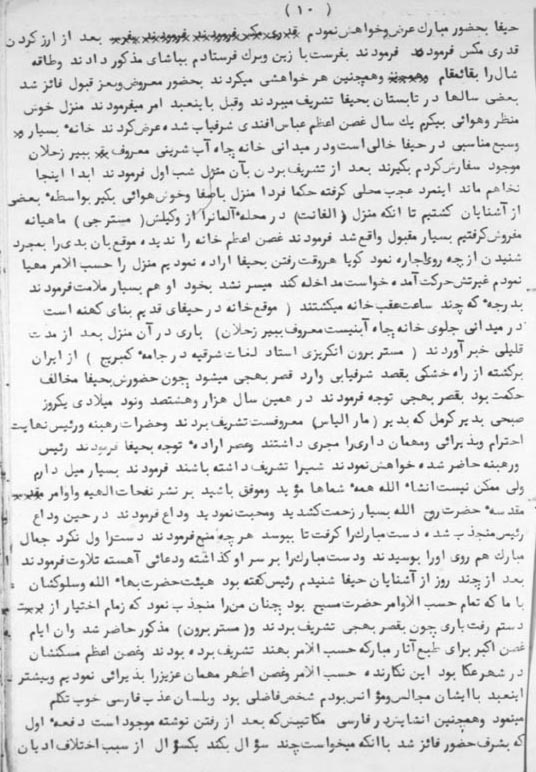 (١٠)
حیفا بحضور مبارك عرض و خواهش نمودم بعد از ارز كردن
قدری مکس فرمودند فرمودند بفرست با زین و برك فرستادم بپاشای مذکور دادند و طاقه
شال را بقائمقام وهمچنین هر خواهشی میکردند بحضور معروض و بعز قبول فائز شد
بعضی سالها در تابستان بحیفا تشریف میبردند وقبل باینعبد امر میفرمودند منزل خوش
منظر و هوائی بیکرم یك سال غصن اعظم عباس افندی شرفیاب شده عرض کردند خانهٔ بسیار
وسیع مناسبی در حیفا خالی است و در میدانی خانه چاه آب شرینی معروف ببیر زحلان
موجود سفارش کردم بکیرند بعد از تشریف بردن بآن منزل شب اول فرمودند ابدا اینجا
نخاهم ماند اینمرد عجب محلی کرفته حکما فردا منزل باصفا وخوش هوائی بکیر بواسطهٔ بعضی
از آشنایان کشتیم تا انکه منزل (الفانت) در محلهٔ آلمانرا از وکیلش (مستر جی) ماهیانه
مفروش کرفتیم بسیار مقبول واقع شد فرمودند غصن اعظم خانه را ندیده موقع بان بدی را بمجرد
شنیدن از چه روی اجاره نمود کویا هر وقت رفتن بحیفا اراده نمودیم منزل را حسب الامر مهیا
نمودم غیرتش حرکت آمده خواست مداخله کند میسر نشد بخود او هم بسیار ملامت فرمودند
بدرجهٔ که چند ساعت عقب خانه میکشتند (موقع خانه در حیفای قدیم بنای کهنه است
در میدانی جلوی خانه چاه آبنیست معروف ببیر زحلان) باری در آن منزل بعد از مدت
قلیلی خبر آوردند (مستر برون انکریزی استاد لغات شرقیه در جامعهٔ کمبریج) از ایران
برکشته از راه خشکی بقصد شرفیابی وارد قصر بهجی میشود چون حضورش بحیفا مخالف
حکمت بود بقصر بهجی توجه فرمودند در همین سال هزار وهشتصد ونود میلادی یکروز
صبحی بدیر کرمل که بدیر (مار الیاس) معروفست تشریف بردند وحضرات رهبنه ورئیس نهایت
احترام وپذیرائی ومهمان داری را مجری داشتند وعصر ارادهٔ توجه بحیفا فرمودند رئیس
ورهبنه حاضر شده خواهش نمودند شبرا تشریف داشته باشند فرمودند بسیار میل دارم
ولی ممکن نیست انشاء الله همهٔ شماها مؤید وموفق باشید بر نشر نفحات الهیه واوامر
مقدسهٔ حضرت روح الله بسیار زحمت کشدید ومحبت نمودید وداع فرمودند در حین وداع
رئیس منجذب شده دست مبارك را کرفت تا ببوسد هر چه منع فرمودند دست را ول نکرد جمال
مبارك هم روی اورا بوسیدند ودست مبارك را بر سر او کذاشته ودعائی آهسته تلاوت فرمودند
بعد از چند روز از آشنایان حیفا شنیدم رئیس کفته بود هیئت حضرت بهاء الله وسلوکشان
با ما که تمام حسب الاوامر حضرت مسیح بود چنان من را منجذب نمود که زمام اختیار از
دستم رفت باری چون بقصر بهجی تشریف بردند و(مستر برون) مذکور حاضر شد وان ایام
غصن اکبر برای طبع آثار مبارکه حسب الامر بهند تشریف برده بودند وغصن اعظم مسکنشان
در شهر عکا بود این نکارنده حسب الامر وغصن اطهر مهمان عزیز را پذیرائی نمودیم وبیشتر
اینعبد با ایشان مجالس ومؤانس بودم شخص فاضلی بود وبلسان عذب فارسی خوب تکلم
مینمود وهمچنین انشایش در فارسی مکاتیبش که بعد از رفتن نوشته موجود است دفعهٔ اول
که بشرف حضور فائز شد با آنکه میخواست چند سؤال بکند یکسؤال از سبب اختلاف ادیان